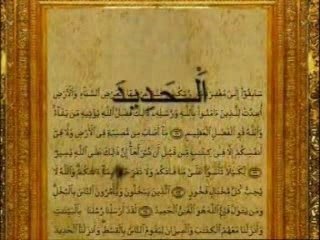 الْحَدِيدَ
سَابِقُوٓا۟ إِلَىٰ مَغْفِرَةٍ السَّمَآءِ وَالْأَرْضِ
أُعِدَّتْ لِلَّذِينَ ءَامَنُوا۟ بِاللَّهِ وَرُسُلِهِۦ ذَٰلِكَ فَضْلُ اللَّهِ يُؤْتِيهِ مَن يَشَآءُ
وَاللَّهُ ذُو الْفَضْلِ الْعَظِيمِ مَآ أَصَابَ مِن مُّصِيبَةٍ فِى الْأَرْضِ وَلَا فِىٓ
أَنفُسِكُمْ إِلَّا فِى كِتَٰبٍ مِّن قَبْلِ أَن نَّبْرَأَهَآ إِنَّ ذَٰلِكَ عَلَى اللَّهِ يَسِيرٌ
لِّكَيْلَا تَأْسَوْا۟ عَلَىٰ مَا فَاتَكُمْ وَاللَّهُ لَا
يُحِبُّ كُلَّ مُخْتَالٍ فَخُورٍ الَّذِينَ يَبْخَلُونَ وَيَأْمُرُونَ النَّاسَ بِالْبُخْلِ
وَمَن يَتَوَلَّ فَإِنَّ اللَّهَ هُوَ الْغَنِىُّ الْحَمِيدُ لَقَدْ أَرْسَلْنَا رُسُلَنَا بِالْبَيِّنَٰتِ
وَأَنزَلْنَا مَعَهُمُ الْكِتَٰبَ وَالْمِيزَانَ لِيَقُومَ النَّاسُ بِالْقِسْطِ وَأَنزَلْنَا الْحَدِيدَ